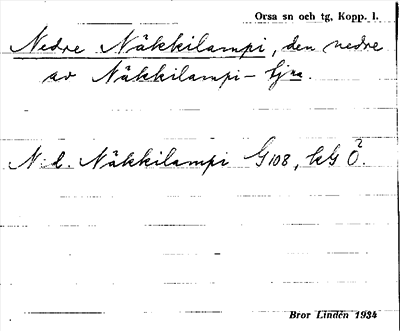 Orsa sn och tg, Kopp. l.
Nedre Näkkilampi, den nedre
av Näkkilampi-tjna.
N:d. Näkkilampi G108, kG Ö².
Bror Lindén 1934